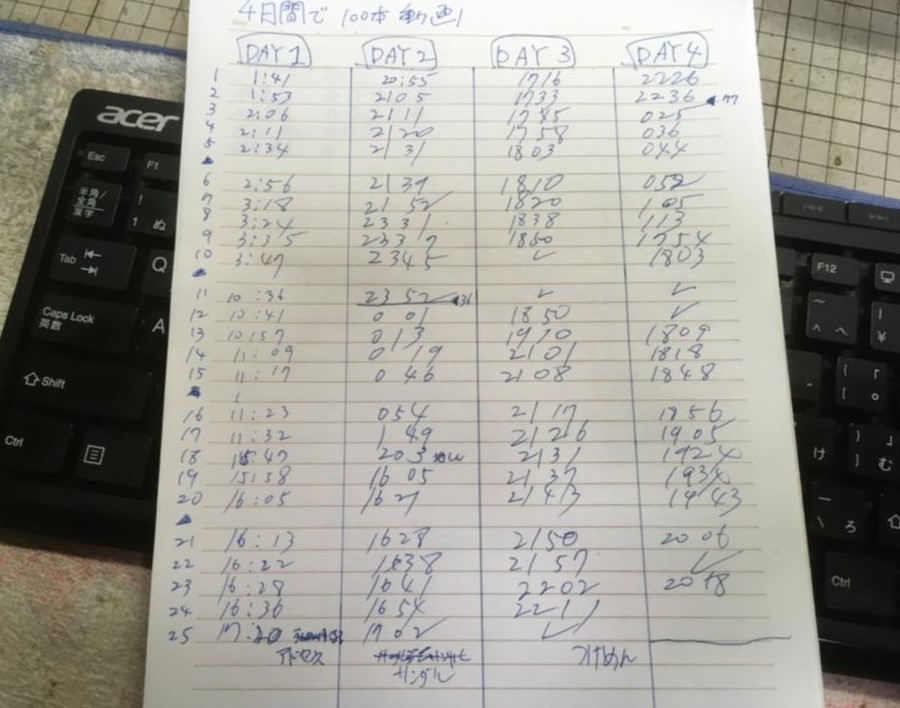 4日間で 100本動画!
DAY1 DAY2 DAY3 DAY4
1 1:41 20:55 1716 2226
2 1:53 2105 1733 2236
3 2:06 2111 1745 025
4 2:11 2120 1758 036
5 2:34 2131 1803 044
6 2:56 2139 1810 052
7 3:18 2152 1820 105
8 3:24 2331 1838 113
9 3:35 2337 1754
10 3:47 2345 ✓ 1803
11 10:36 2352 36 ✓ ✓
12 10:41 001 1850 ✓
13 10:57 013 1809
14 11:09 019 2101 1818
15 11:17 046 2108 1848
16 11:23 054 2117 1856
17 11:32 149 2126 1905
18 15:47 203 2131 1924
19 15:58 1605 2137 1934
20 16:05 1621 2143 1943
21 16:13 1628 2150 2006
22 16:22 1638 2157 ✓
23 16:28 1641 2202 2018
24 16:36 1654 2211
25 17:20 1702 ✓
アドセンス サンダル つけめん
acer
Esc F1
半角/全角 漢字
! 1 ぬ
Tab Q
Caps Lock 英数 A
Shift
Ctrl
F12
~ ^ へ
| ¥
{ [ 「 ゜
け } ] 」 む
\ ろ
Ctrl